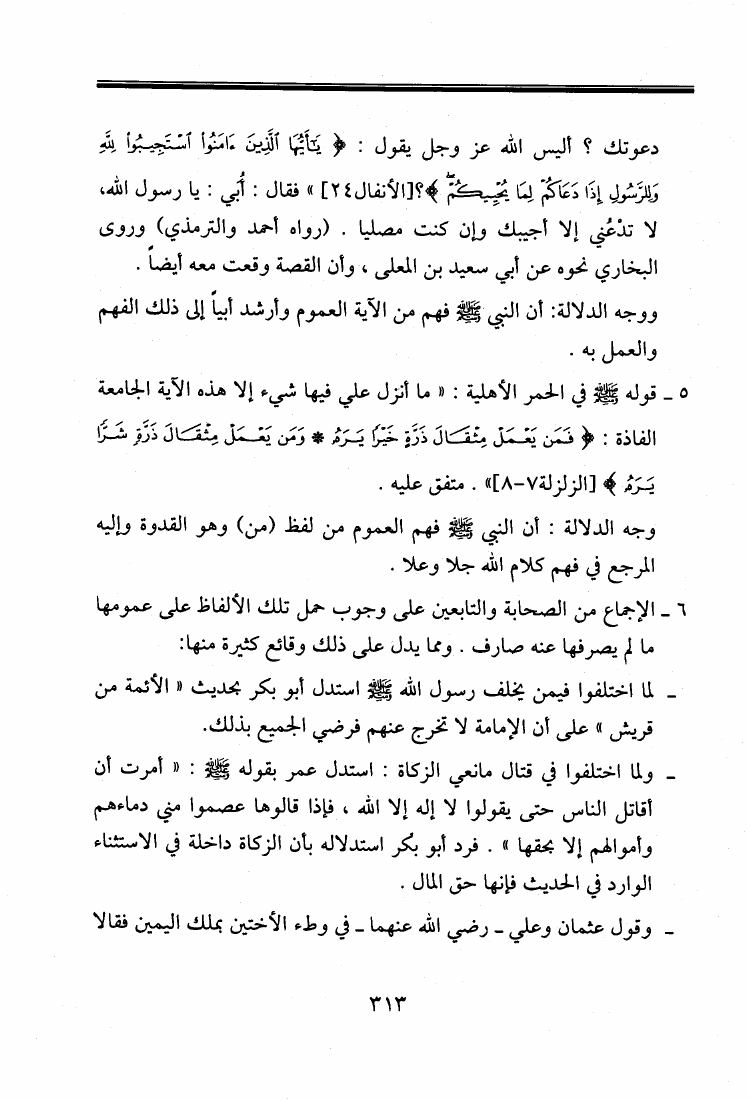 دعوتك ؟ أليس الله عز وجل يقول : ﴿ يَٰٓأَيُّهَا ٱلَّذِينَ ءَامَنُوا۟ ٱسْتَجِيبُوا۟ لِلَّهِ
وَلِلرَّسُولِ إِذَا دَعَاكُمْ لِمَا يُحْيِيكُمْ ﴾؟[الأنفال٢٤] » فقال : أُبي : يا رسول الله،
لا تدْعُني إلا أجيبك وإن كنت مصليا . (رواه أحمد والترمذي) وروى
البخاري نحوه عن أبي سعيد بن المعلى ، وأن القصة وقعت معه أيضاً .
ووجه الدلالة: أن النبي ﷺ فهم من الآية العموم وأرشد أبياً إلى ذلك الفهم
والعمل به .
٥ ـ قوله ﷺ في الحمر الأهلية : « ما أنزل علي فيها شيء إلا هذه الآية الجامعة
الفاذة : ﴿ فَمَن يَعْمَلْ مِثْقَالَ ذَرَّةٍ خَيْرًا يَرَهُۥ * وَمَن يَعْمَلْ مِثْقَالَ ذَرَّةٍ شَرًّا
يَرَهُۥ ﴾ [الزلزلة٧-٨]» . متفق عليه .
وجه الدلالة : أن النبي ﷺ فهم العموم من لفظ (من) وهو القدوة وإليه
المرجع في فهم كلام الله جلا وعلا .
٦ ـ الإجماع من الصحابة والتابعين على وجوب حمل تلك الألفاظ على عمومها
ما لم يصرفها عنه صارف . ومما يدل على ذلك وقائع كثيرة منها:
ـ لما اختلفوا فيمن يخلف رسول الله ﷺ استدل أبو بكر بحديث « الأئمة من
قريش » على أن الإمامة لا تخرج عنهم فرضي الجميع بذلك.
ـ ولما اختلفوا في قتال مانعي الزكاة : استدل عمر بقوله ﷺ : « أمرت أن
أقاتل الناس حتى يقولوا لا إله إلا الله ، فإذا قالوها عصموا مني دماءهم
وأموالهم إلا بحقها » . فرد أبو بكر استدلاله بأن الزكاة داخلة في الاستثناء
الوارد في الحديث فإنها حق المال .
ـ وقول عثمان وعلي ـ رضي الله عنهما ـ في وطء الأختين بملك اليمين فقالا
٣١٣